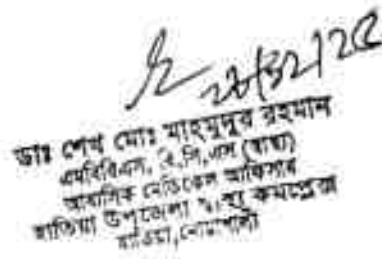 ২৮/১২/২৫
ডাঃ শেখ মোঃ মাহমুদুর রহমান
এমবিবিএস, বি,সি,এস (স্বাস্থ্য)
আবাসিক মেডিকেল অফিসার
হাতিয়া উপজেলা স্বাস্থ্য কমপ্লেক্স
হাতিয়া, নোয়াখালী